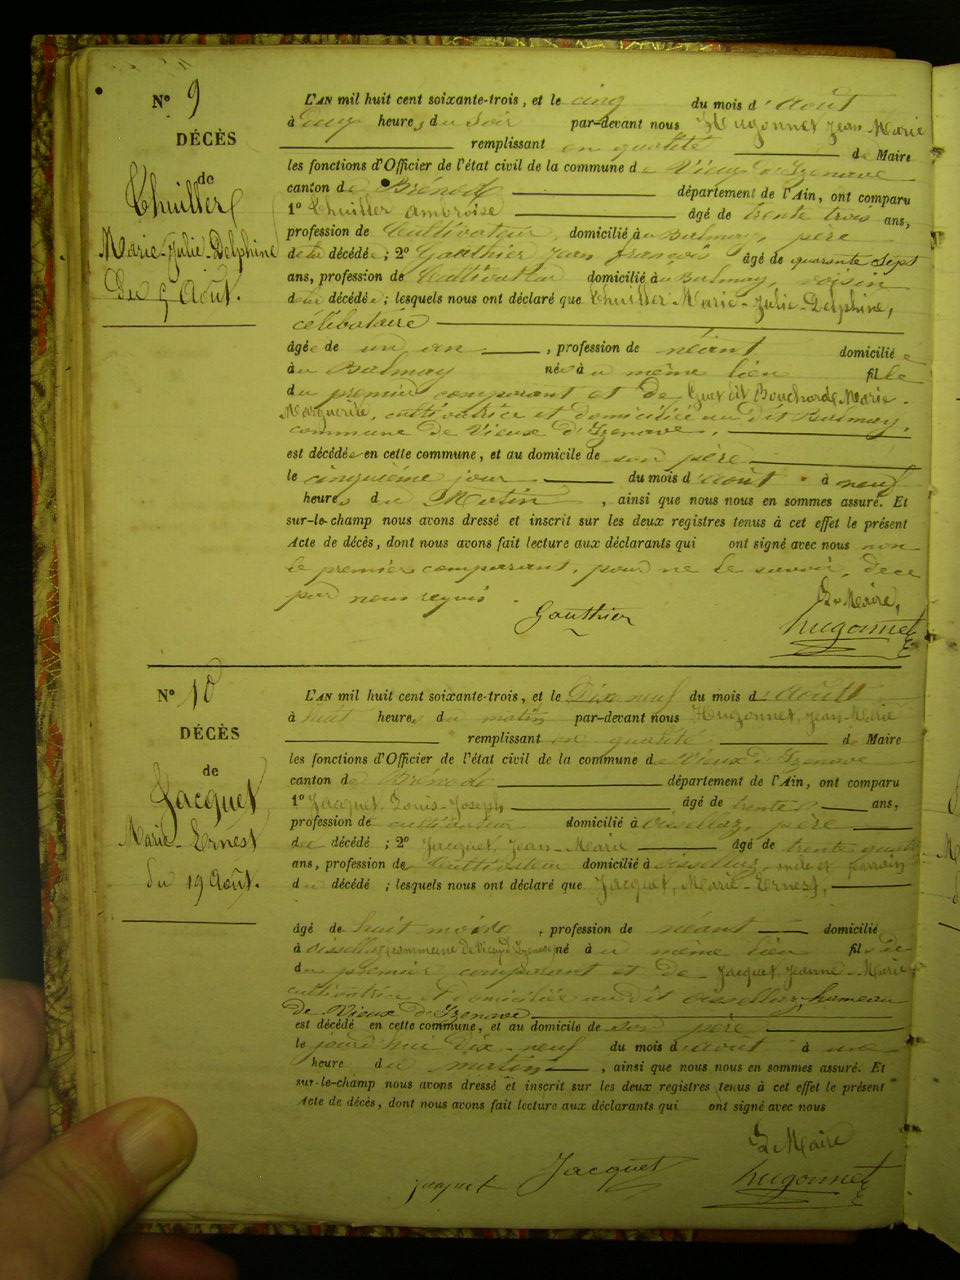 N° 9
DÉCÈS
de
Thuiller
Marie-Julie-Delphine
Du 5 Août.
L'AN mil huit cent soixante-trois, et le cinq du mois d'Août
à heures du soir par-devant nous Hugonnet Jean Marie
remplissant en qualité de Maire
les fonctions d'Officier de l'état civil de la commune de Vieux d'Izenave
canton de Brénod département de l'Ain, ont comparu
1° Thuiller Ambroise âgé de trente trois ans,
profession de Cultivateur, domicilié à Balmay, père
de la décédée; 2° Gauthier Jean françois âgé de quarante sept
ans, profession de Cultivateur domicilié à Balmay, voisin
de la décédée; lesquels nous ont déclaré que Thuiller Marie-Julie-Delphine,
célibataire
âgée de un an, profession de néant domiciliée
à Balmay née à u même lieu fille
du premier comparant et de Bouchard Marie
Marguerite, cultivatrice et domiciliée au dit Balmay,
commune de Vieux d'Izenave,
est décédée en cette commune, et au domicile de son père
le cinquième jour du mois d'août à neuf
heures du Matin, ainsi que nous nous en sommes assuré. Et
sur-le-champ nous avons dressé et inscrit sur les deux registres tenus à cet effet le présent
Acte de décès, dont nous avons fait lecture aux déclarants qui ont signé avec nous non
le premier comparant, pour ne le savoir, de ce
par nous requis.
Le Maire,
Gauthier hugonnet
N° 10
DÉCÈS
de
Jacquet
Marie-Ernest
du 19 Août.
L'AN mil huit cent soixante-trois, et le Dix neuf du mois d'Août
à huit heures du matin par-devant nous Hugonnet, Jean Marie
remplissant en qualité de Maire
les fonctions d'Officier de l'état civil de la commune de Vieux d'Izenave
canton de Brénod département de l'Ain, ont comparu
1° Jacquet Louis-Joseph âgé de trente ans,
profession de cultivateur domicilié à Oisellaz, père
du décédé; 2° Jacquet, Jean-Marie âgé de trente
ans, profession de Cultivateur domicilié à Oisellaz, oncle et parrain
du décédé; lesquels nous ont déclaré que Jacquet, Marie-Ernest,
âgé de huit mois, profession de néant domicilié
à Oisellaz, commune de Vieux d'Izenave né à u même lieu fils de
du premier comparant et de Jacquet Jeanne-Marie,
cultivatrice et domiciliée au dit Oisellaz, hameau
De Vieux d'Izenave
est décédé en cette commune, et au domicile de son père
le jourd'hui Dix-neuf du mois d'août à une
heure du matin, ainsi que nous nous en sommes assuré. Et
sur-le-champ nous avons dressé et inscrit sur les deux registres tenus à cet effet le présent
Acte de décès, dont nous avons fait lecture aux déclarants qui ont signé avec nous
Le Maire
jacquet Jacquet hugonnet